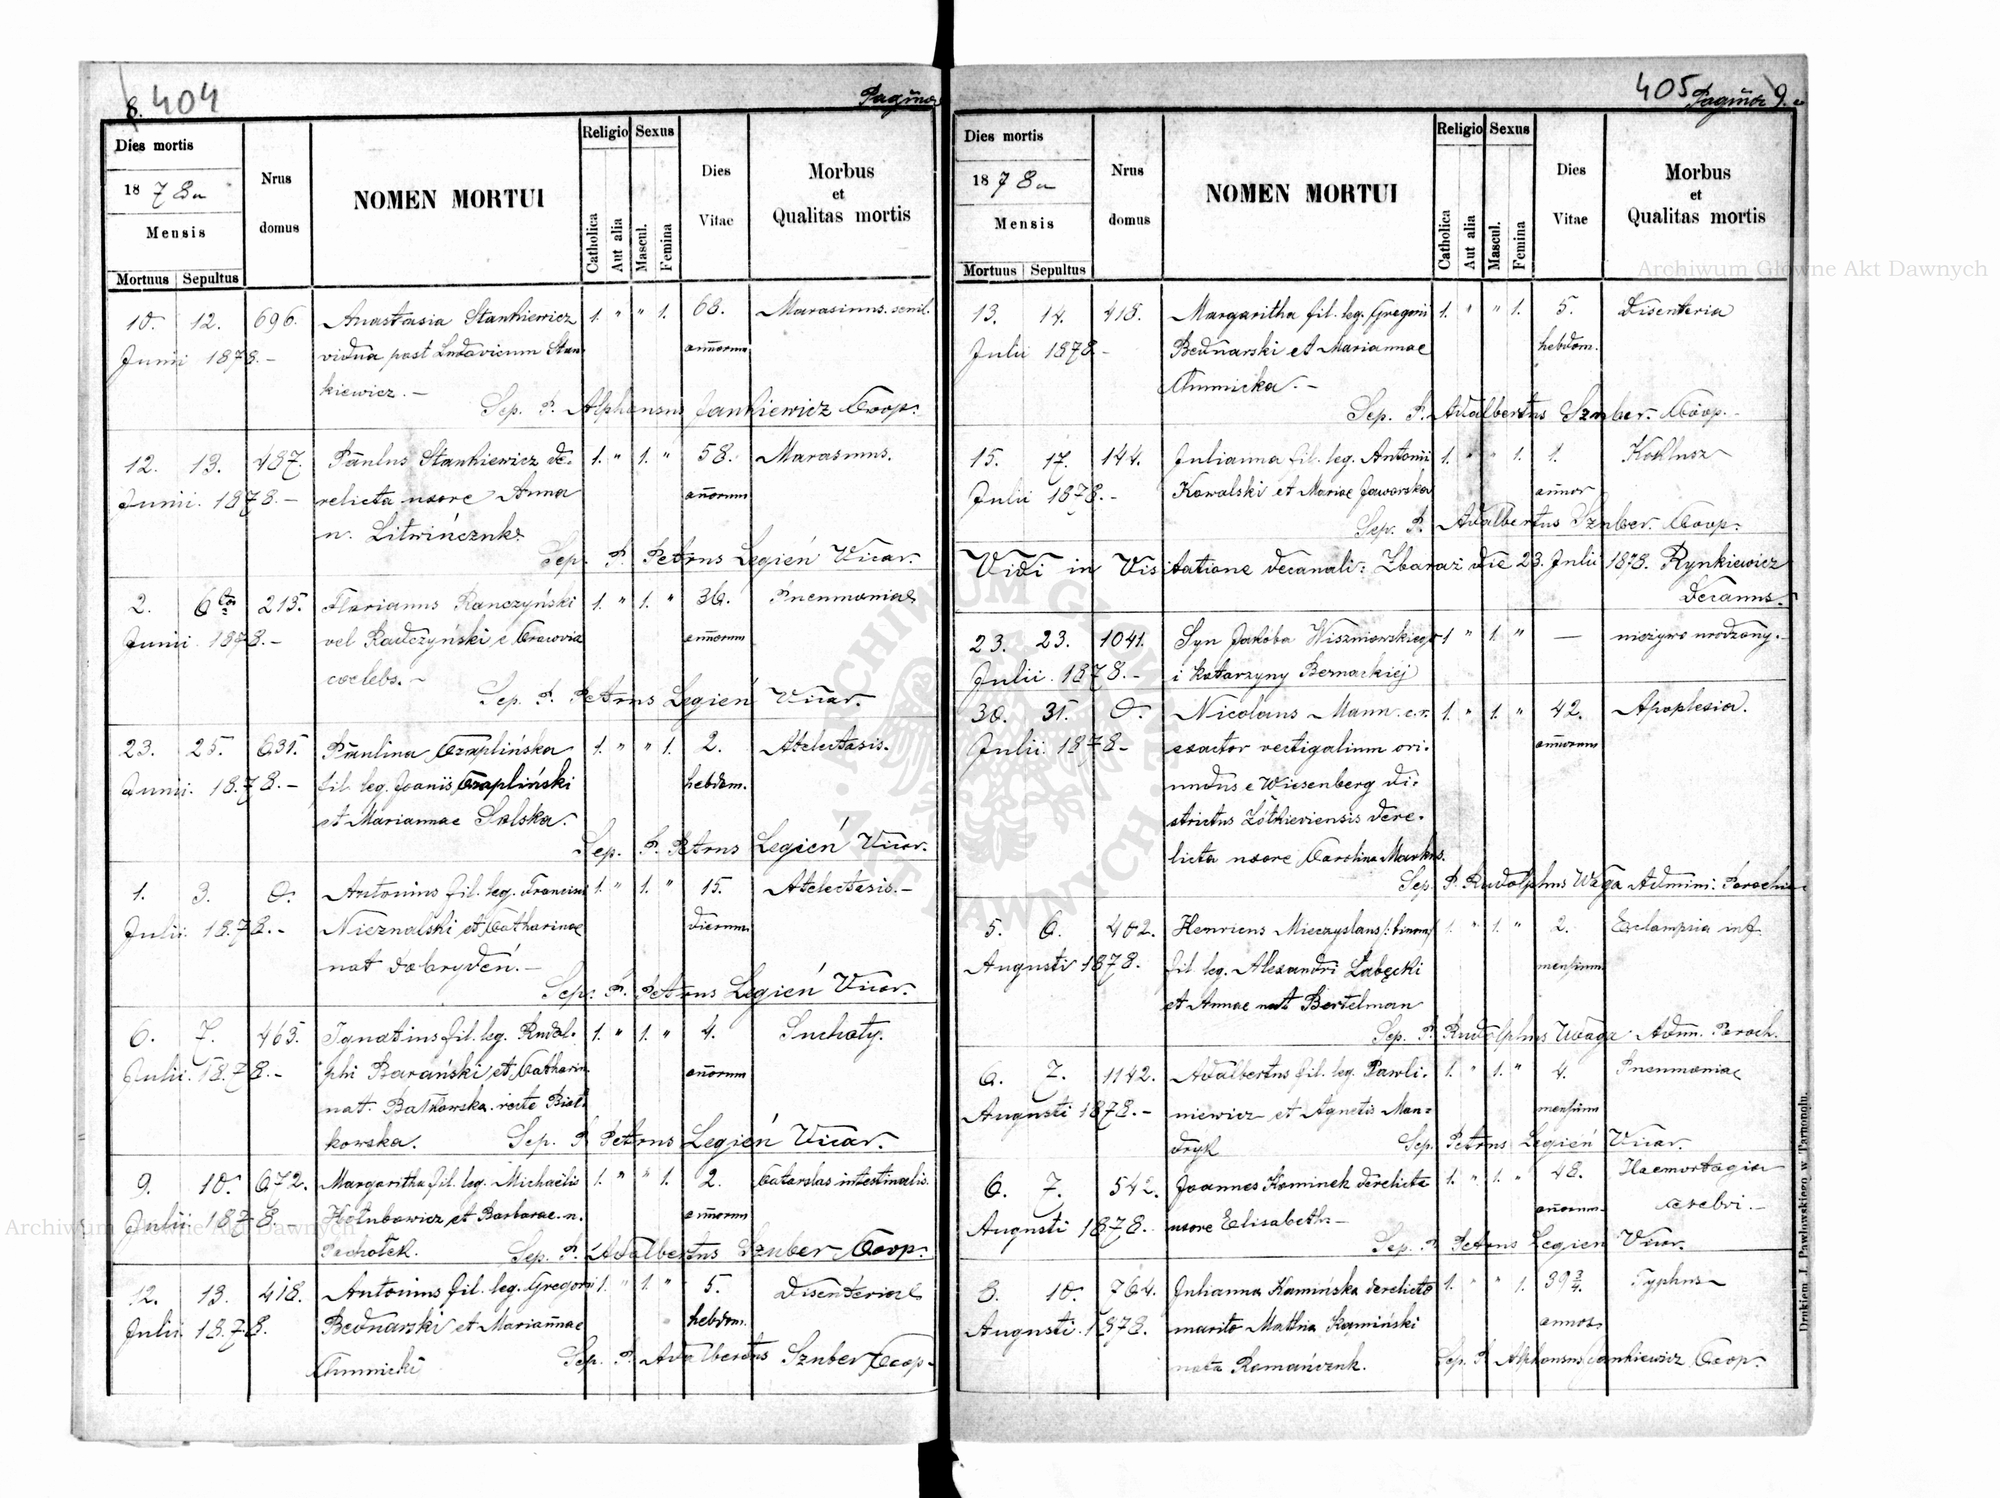 8. 404
Pagina
Dies mortis
1878a
Mensis
Mortuus Sepultus
Nrus domus
NOMEN MORTUI
Religio
Catholica
Aut alia
Sexus
Mascul.
Femina
Dies Vitae
Morbus
et
Qualitas mortis
10. 12. 696. Anastasia Stankiewicz 1. " " 1. 68. Marasmus senil.
Junii 1878.- vidua post Ludovicum Stan- annorum
kiewicz.-
Sep. P. Alphonsus Jankiewicz Coop.
12. 13. 487. Paulus Stankiewicz de- 1. " 1. " 58. Marasmus.
Junii. 1878.- relicta uxore Anna annorum
n. Litwińczuk
Sep. P. Petrus Legień Vicar.
2. 6 213. Florianus Ranczyński 1. " 1. " 36. Pneumoniae
Junii. 1878.- vel Radczyński e Cracovia annorum
coelebs.-
Sep. P. Petrus Legień Vicar.
23. 25. 631. Paulina Czaplińska 1. " " 1. 2. Atelectasis.
Junii. 1878.- fil. leg. Joanis Czapliński hebdom.
et Mariannae Solska.
Sep. P. Petrus Legień Vicar.
1. 3. 0. Antonius fil. leg. Francisci 1. " 1. " 15. Atelectasis.-
Julii. 1878.- Nieznalski et Catharinae dierum.
nat dobrydeń.-
Sep. P. Petrus Legień Vicar.
6. 7. 463. Ignatius fil. leg. Rudol- 1. " 1. " 4. Suchoty.
Julii. 1878.- phi Barański et Catharin. annorum
nat. recte Biał-
kowska. Sep. P. Petrus Legień Vicar.
9. 10. 672. Margaritha fil. leg. Michaelis 1. " " 1. 2. intestinalis.
Julii 1878.- Hołubowicz et Barbarae n. annorum
Pachołek. Sep. P. Adalbertus Szuber Coop.
12. 13. 418. Antonius fil. leg. Gregorii 1. " 1. " 5. Disenteriae
Julii 1878. Bednarski et Mariannae hebdom.
Chumnicki Sep. P. Adalbertus Szuber Coop.
405 Pagina 9.
Dies mortis
1878a
Mensis
Mortuus Sepultus
Nrus domus
NOMEN MORTUI
Religio
Catholica
Aut alia
Sexus
Mascul.
Femina
Dies Vitae
Morbus
et
Qualitas mortis
13. 14. 418. Margaritha fil. leg. Gregorii 1. " " 1. 5. Disenteria
Julii 1878- Bednarski et Mariannae hebdom.
Chumnicka.-
Sep. P. Adalbertus Szuber. Coop.
15. 17. 144. Julianna fil. leg. Antonii 1. " " 1. 1. Koklusz
Julii 1878.- Kowalski et Mariae Jaworska annor
Sep. P. Adalbertus Szuber. Coop.
Vidi in Visitatione decanali: Zbaraz die 23. Julii 1878. Rynkiewicz
Decanus.
23. 23. 1041. Syn Jakóba Wiszniowskiego 1 " 1. " — nieżywo urodzony.
Julii. 1878.- i Katarzyny Bernackiej
30. 31. 0. Nicolaus Mann c.r. 1. " 1. " 42. Apoplexia.
Julii. 1878- exactor vectigalium ori- annorum
undus e Wiesenberg di-
strictus Żółkieviensis dere-
licta uxore Carolina Markus.
Sep. P. Rudolphus Waga Admini. Parochiae
5. 6. 402. Henricus Mieczyslaus /:binom:/ 1. " 1. " 2. Eclampsia inf.
Augusti 1878. fil. leg. Alexandri Łabęcki mensium
et Annae nat Bertelman
Sep. P. Rudolphus Waga Adm. Paroch.
6. 7. 1142. Adalbertus fil. leg. Pawli- 1. " 1. " 4. Pneumoniae
Augusti 1878.- niewicz et Agnetis Man- mensium
dryk Sep. Petrus Legień Vicar.
6. 7. 542. Joannes Kominek derelicta 1. " 1. " 48. Haemorhagia
Augusti 1878. uxore Elisabeth- annorum cerebri.-
Sep. P. Petrus Legień Vicar.
8. 10. 764. Julianna Kamińska derelicto 1. " " 1. 39 3/4 Typhus
Augusti. 1878. marito Mathia Kamiński annos
nata Romańczuk. Sep. P. Alphonsus Jankiewicz Coop.
Drukiem J. Pawłowskiego w Tarnopolu.
Archiwum Główne Akt Dawnych
Archiwum Główne Akt Dawnych
ARCHIWUM GŁÓWNE AKT DAWNYCH